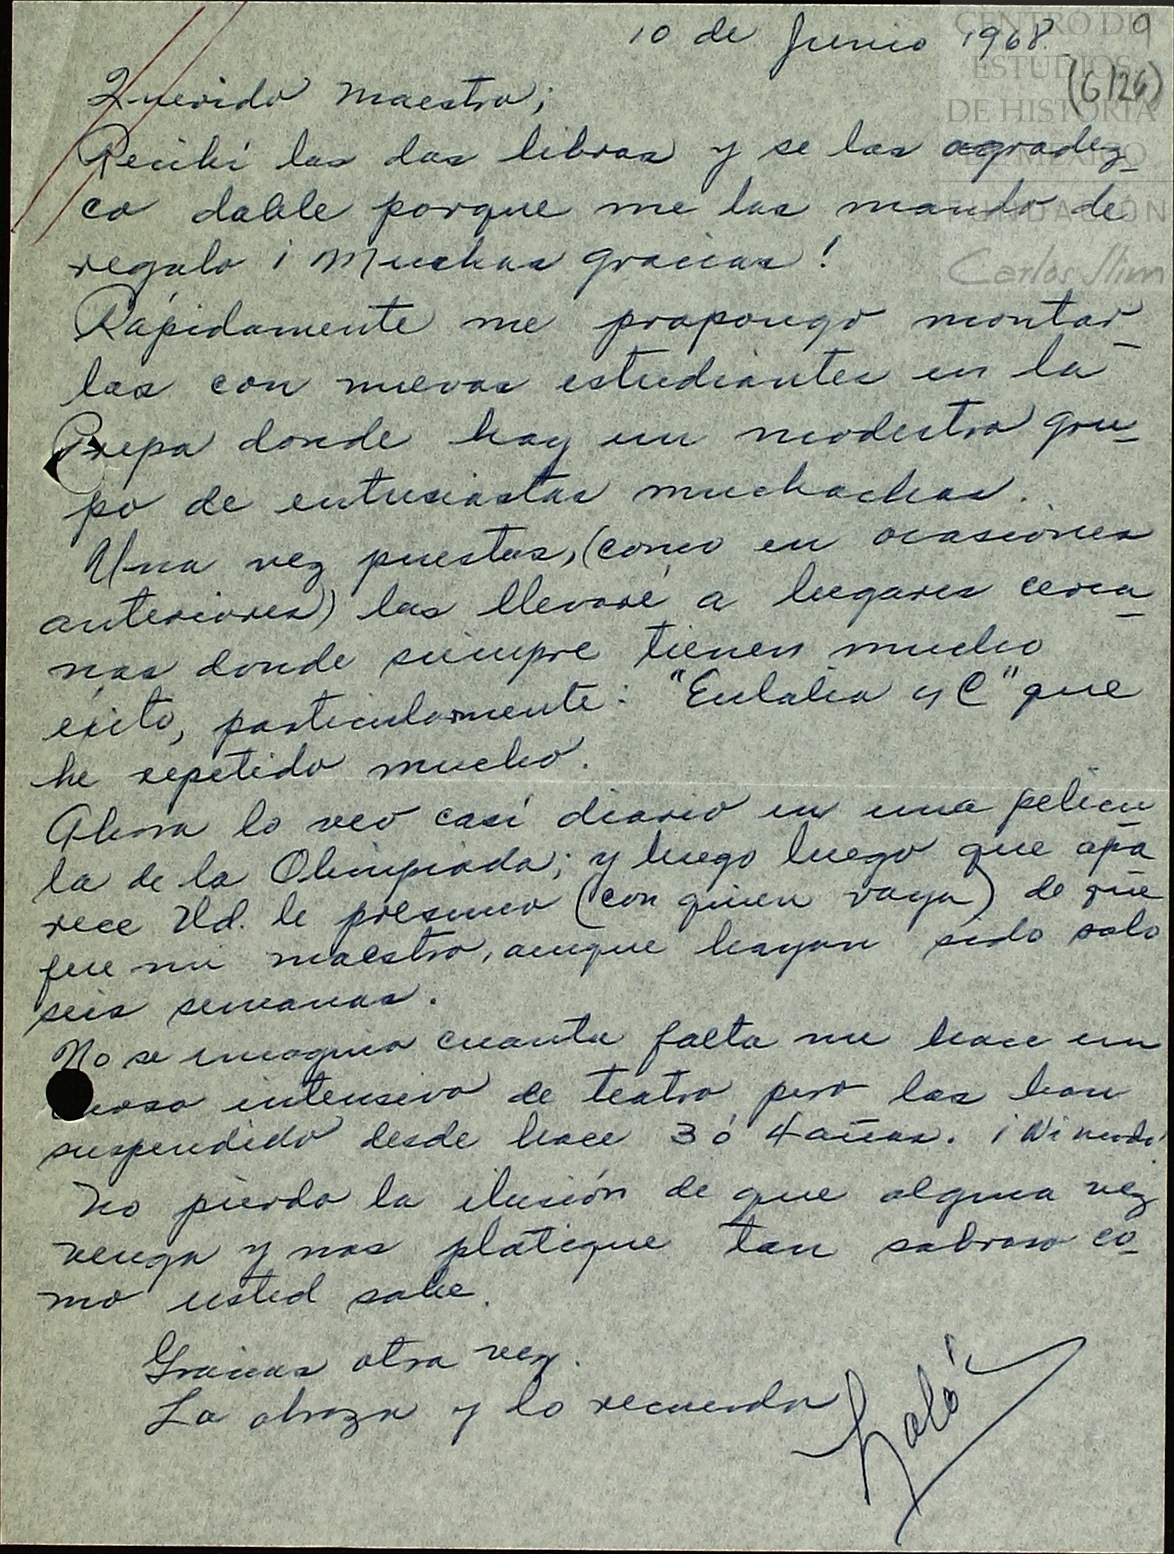 10 de Junio 1968. 9
(6/26)
CENTRO DE
ESTUDIOS
DE HISTORIA
DE MÉXICO
FUNDACIÓN
Carlos Slim
Querido Maestro;
Recibí los dos libros y se los agradez-
co doble porque me los mando de
regalo ¡Muchas gracias!
Rápidamente me propongo montar-
las con nuevos estudiantes en la
Prepa donde hay un modestro gru-
po de entusiastas muchachos.
Una vez puestas, (como en ocasiones
anteriores) las llevaré a lugares cerca-
nos donde siempre tienen mucho
éxito, particularmente: "Eulalia y C" que
he repetido mucho.
Ahora lo veo casi diario en una pelicu-
la de la Olimpiada; y luego luego que apa-
rece Ud. le presumo (con quien vaya) de que
fue mi maestro, aunque hayan sido solo
seis semanas.
No se imagina cuanta falta me hace un
curso intensivo de teatro pero los han
suspendido desde hace 3 ó 4 años. ¡Ni modo!
No pierdo la ilusión de que alguna vez
venga y nos platique tan sabroso co-
mo usted sabe.
Gracias otra vez.
Lo abraza y lo recuerda